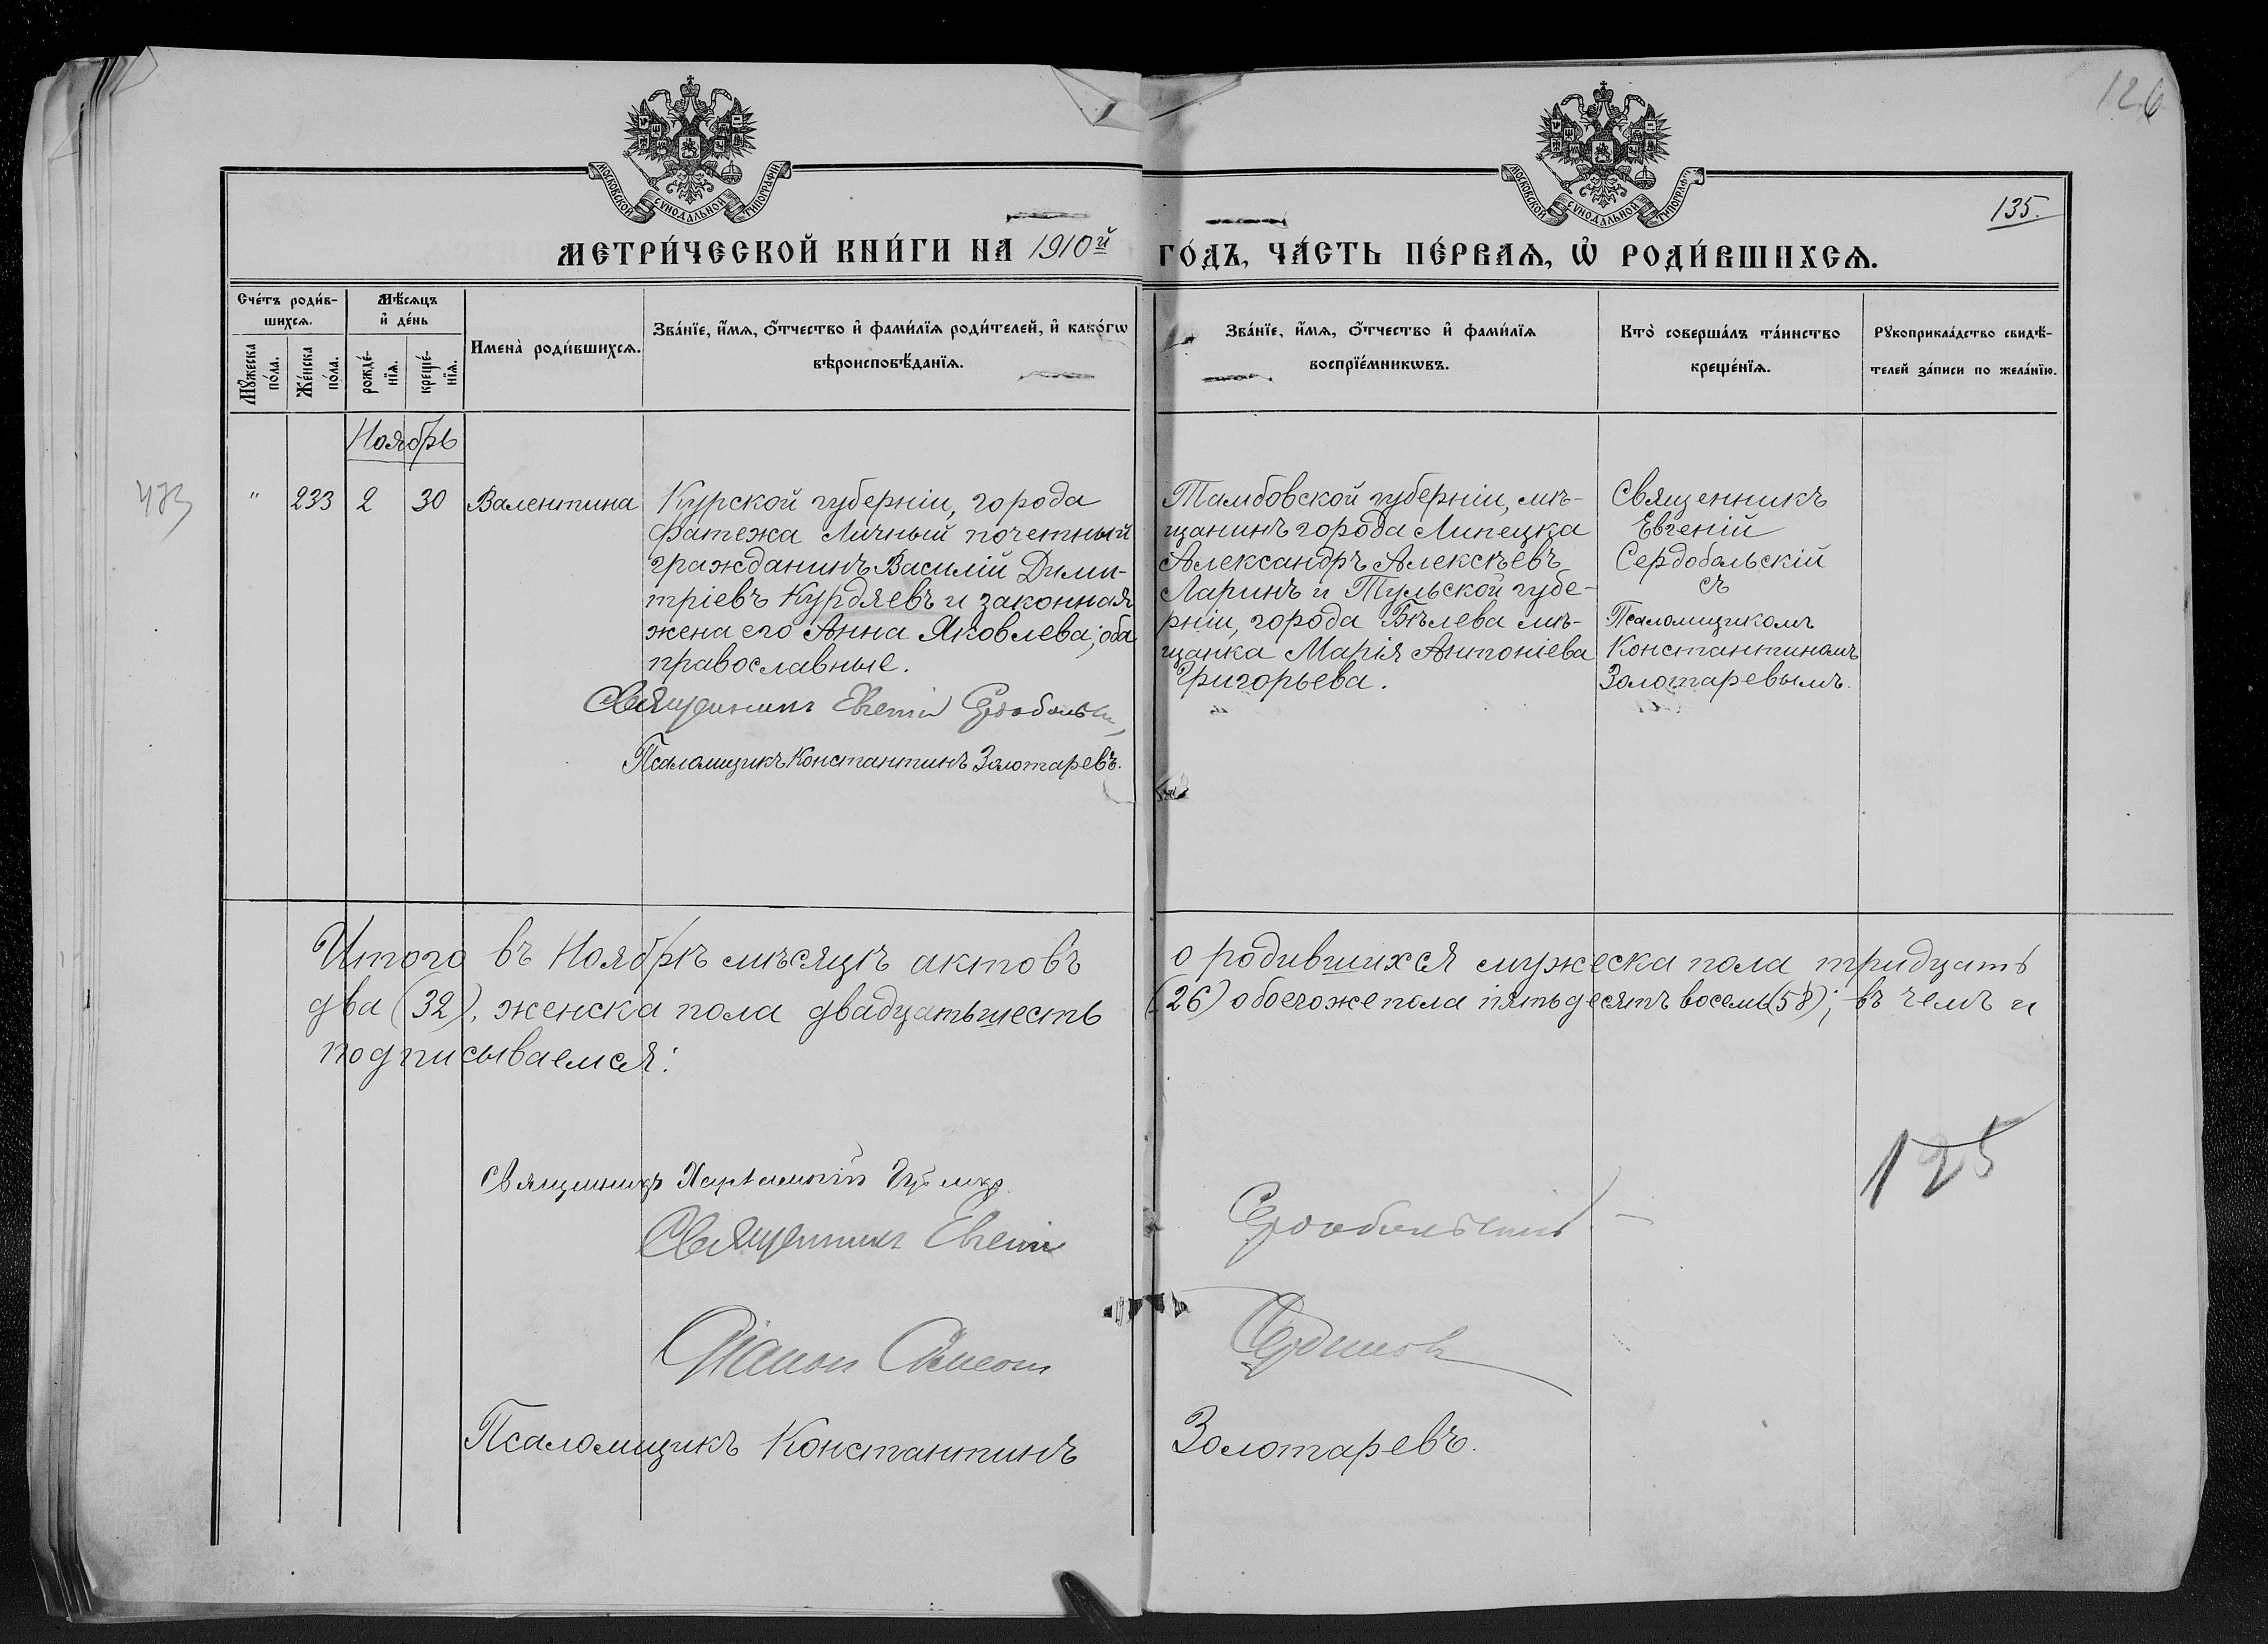 126
МОСКОВСКОЙ СУНОДАЛЬНОЙ ТИПОГРАФІИ
МОСКОВСКОЙ СУНОДАЛЬНОЙ ТИПОГРАФІИ
135.
МЕТРИ́ЧЕСКОЙ КНИ́ГИ НА 1910й ГО́ДЪ, ЧА́СТЬ ПЕ́РВАѦ, Ѡ҆ РОДИ́ВШИХСѦ.
Сче́тъ роди́в-
шихсѧ.
Мꙋ́жеска
по́ла.
Же́нска
по́ла.
Мѣ́сѧцъ
и҆ де́нь
рожде́-
нїѧ.
креще́-
нїѧ.
Имена̀ роди́вшихсѧ.
Зва́нїе, и҆́мѧ, ѻ҆́тчество и҆ фами́лїѧ роди́телей, и҆ како́гѡ
вѣроисповѣ́данїѧ.
Зва́нїе, и҆́мѧ, ѻ҆́тчество и҆ фами́лїѧ
воспрїе́мникѡвъ.
Кто̀ соверша́лъ та́инство
креще́нїѧ.
Рꙋкоприкла́дство свидѣ́-
телей за́писи по жела́нїю.
Ноябрь
473
" 233 2 30 Валентина
Курской губерніи, города
Фатежа Личный почетный
гражданинъ Василій Дими-
тріевъ Курдяевъ и законная
жена его Анна Яковлева; оба
православные.
Священникъ Евгеній Сердобольскій
Псаломщикъ Константинъ Золотаревъ.
Тамбовской губерніи, мѣ-
щанинъ города Липецка
Александръ Алексѣевъ
Ларинъ и Тульской губе-
рніи, города Бѣлева мѣ-
щанка Марія Антоніева
Григорьева.
Священникъ
Евгеній
Сердобольскій
съ
Псаломщикомъ
Константиномъ
Золотаревымъ.
Итого въ Ноябрѣ мѣсяцѣ актовъ о родившихся мужеска пола тридцать
два (32), женска пола двадцать шесть (26) обоего же пола пятьдесятъ восемь (58); въ чемъ и
подписываемся:
125
Священникъ
Священникъ Евгеній Сердобольскій
Діаконъ Симеонъ
Псаломщикъ Константинъ Золотаревъ.